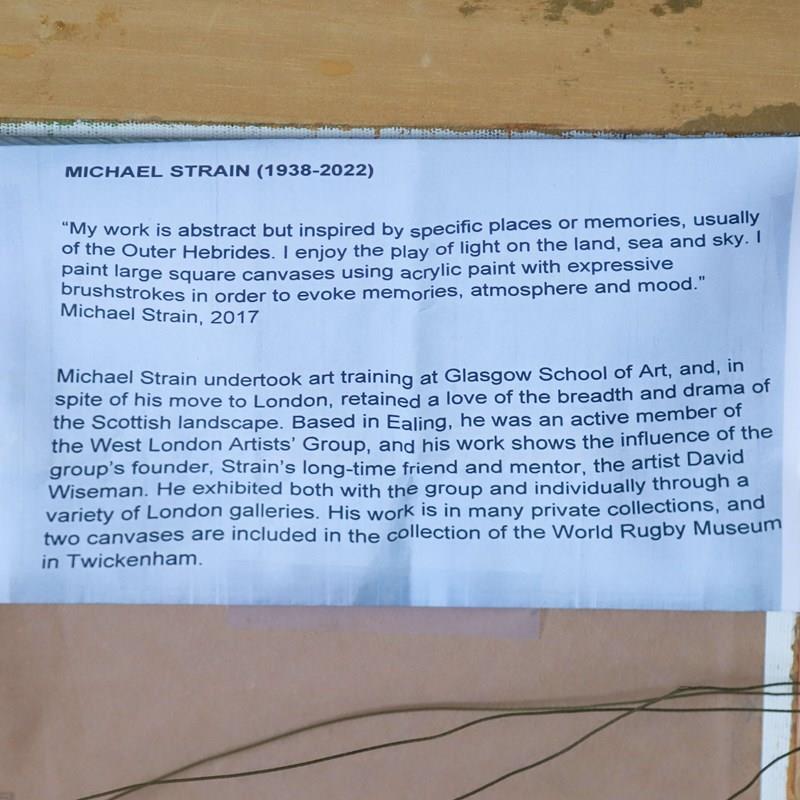 MICHAEL STRAIN (1938-2022)
“My work is abstract but inspired by specific places or memories, usually
of the Outer Hebrides. I enjoy the play of light on the land, sea and sky. I
paint large square canvases using acrylic paint with expressive
brushstrokes in order to evoke memories, atmosphere and mood.”
Michael Strain, 2017
Michael Strain undertook art training at Glasgow School of Art, and, in
spite of his move to London, retained a love of the breadth and drama of
the Scottish landscape. Based in Ealing, he was an active member of
the West London Artists’ Group, and his work shows the influence of the
group’s founder, Strain’s long-time friend and mentor, the artist David
Wiseman. He exhibited both with the group and individually through a
variety of London galleries. His work is in many private collections, and
two canvases are included in the collection of the World Rugby Museum
in Twickenham.